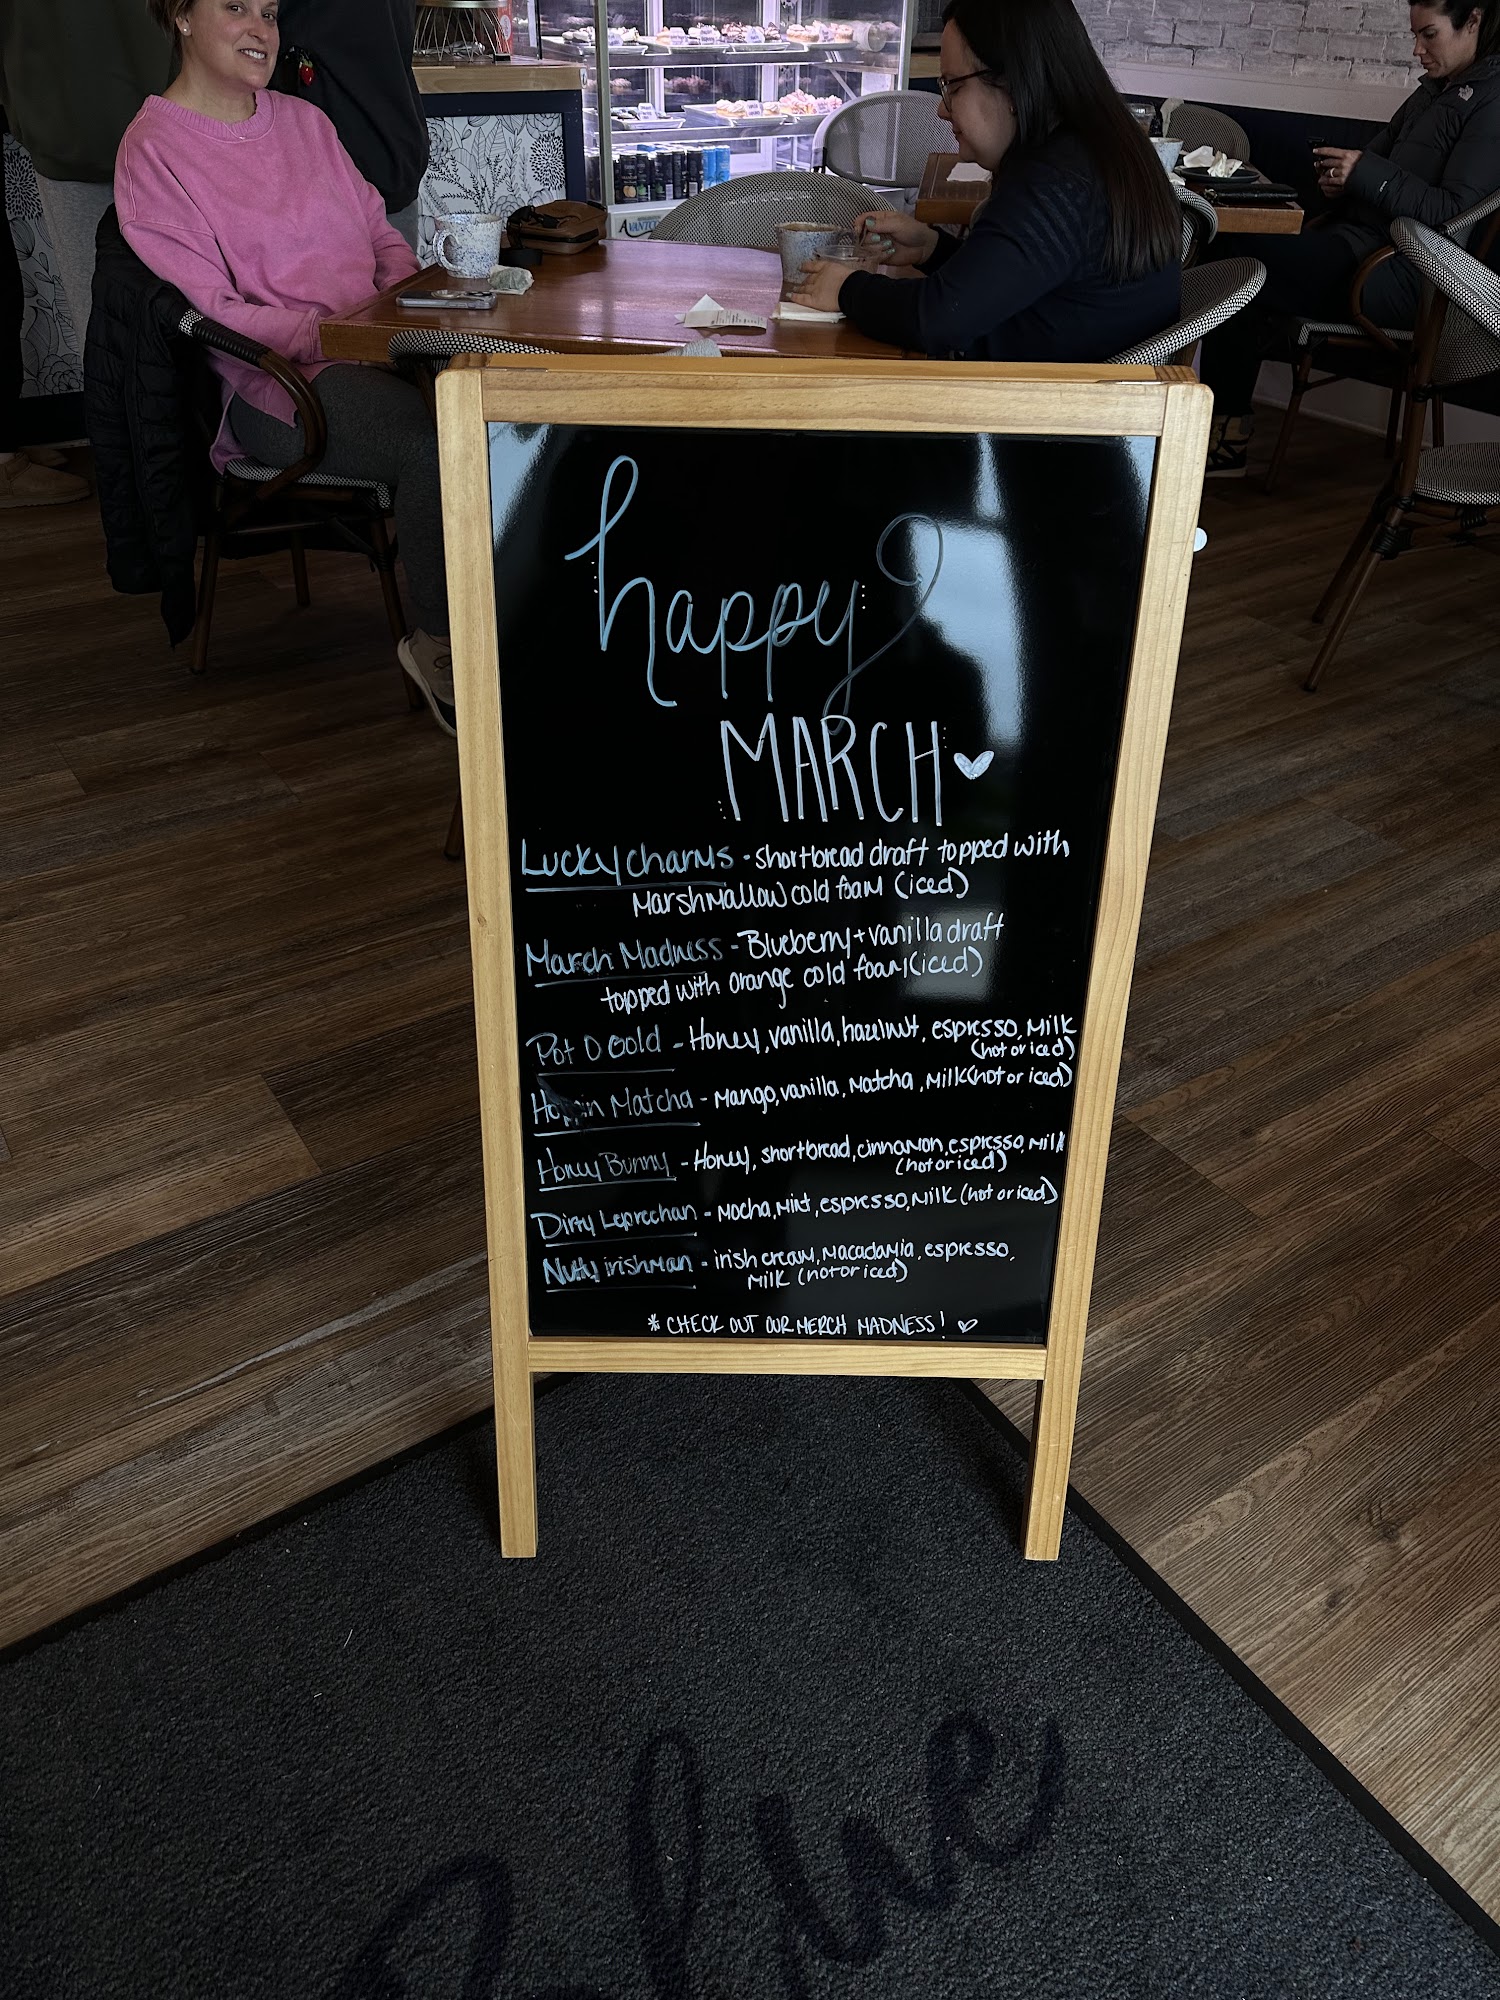 happy
MARCH
Lucky Charms - shortbread draft topped with
marshmallow cold foam (iced)
March Madness - Blueberry + vanilla draft
topped with orange cold foam (iced)
Pot O Gold - Honey, vanilla, hazelnut, espresso, milk
(hot or iced)
Hoppin Matcha - mango, vanilla, matcha, milk (hot or iced)
Honey Bunny - Honey, shortbread, cinnamon, espresso, milk
(hot or iced)
Dirty Leprechan - mocha, mint, espresso, milk (hot or iced)
Nutty irishman - irish cream, macadamia, espresso,
milk (hot or iced)
* CHECK OUT OUR MERCH MADNESS!